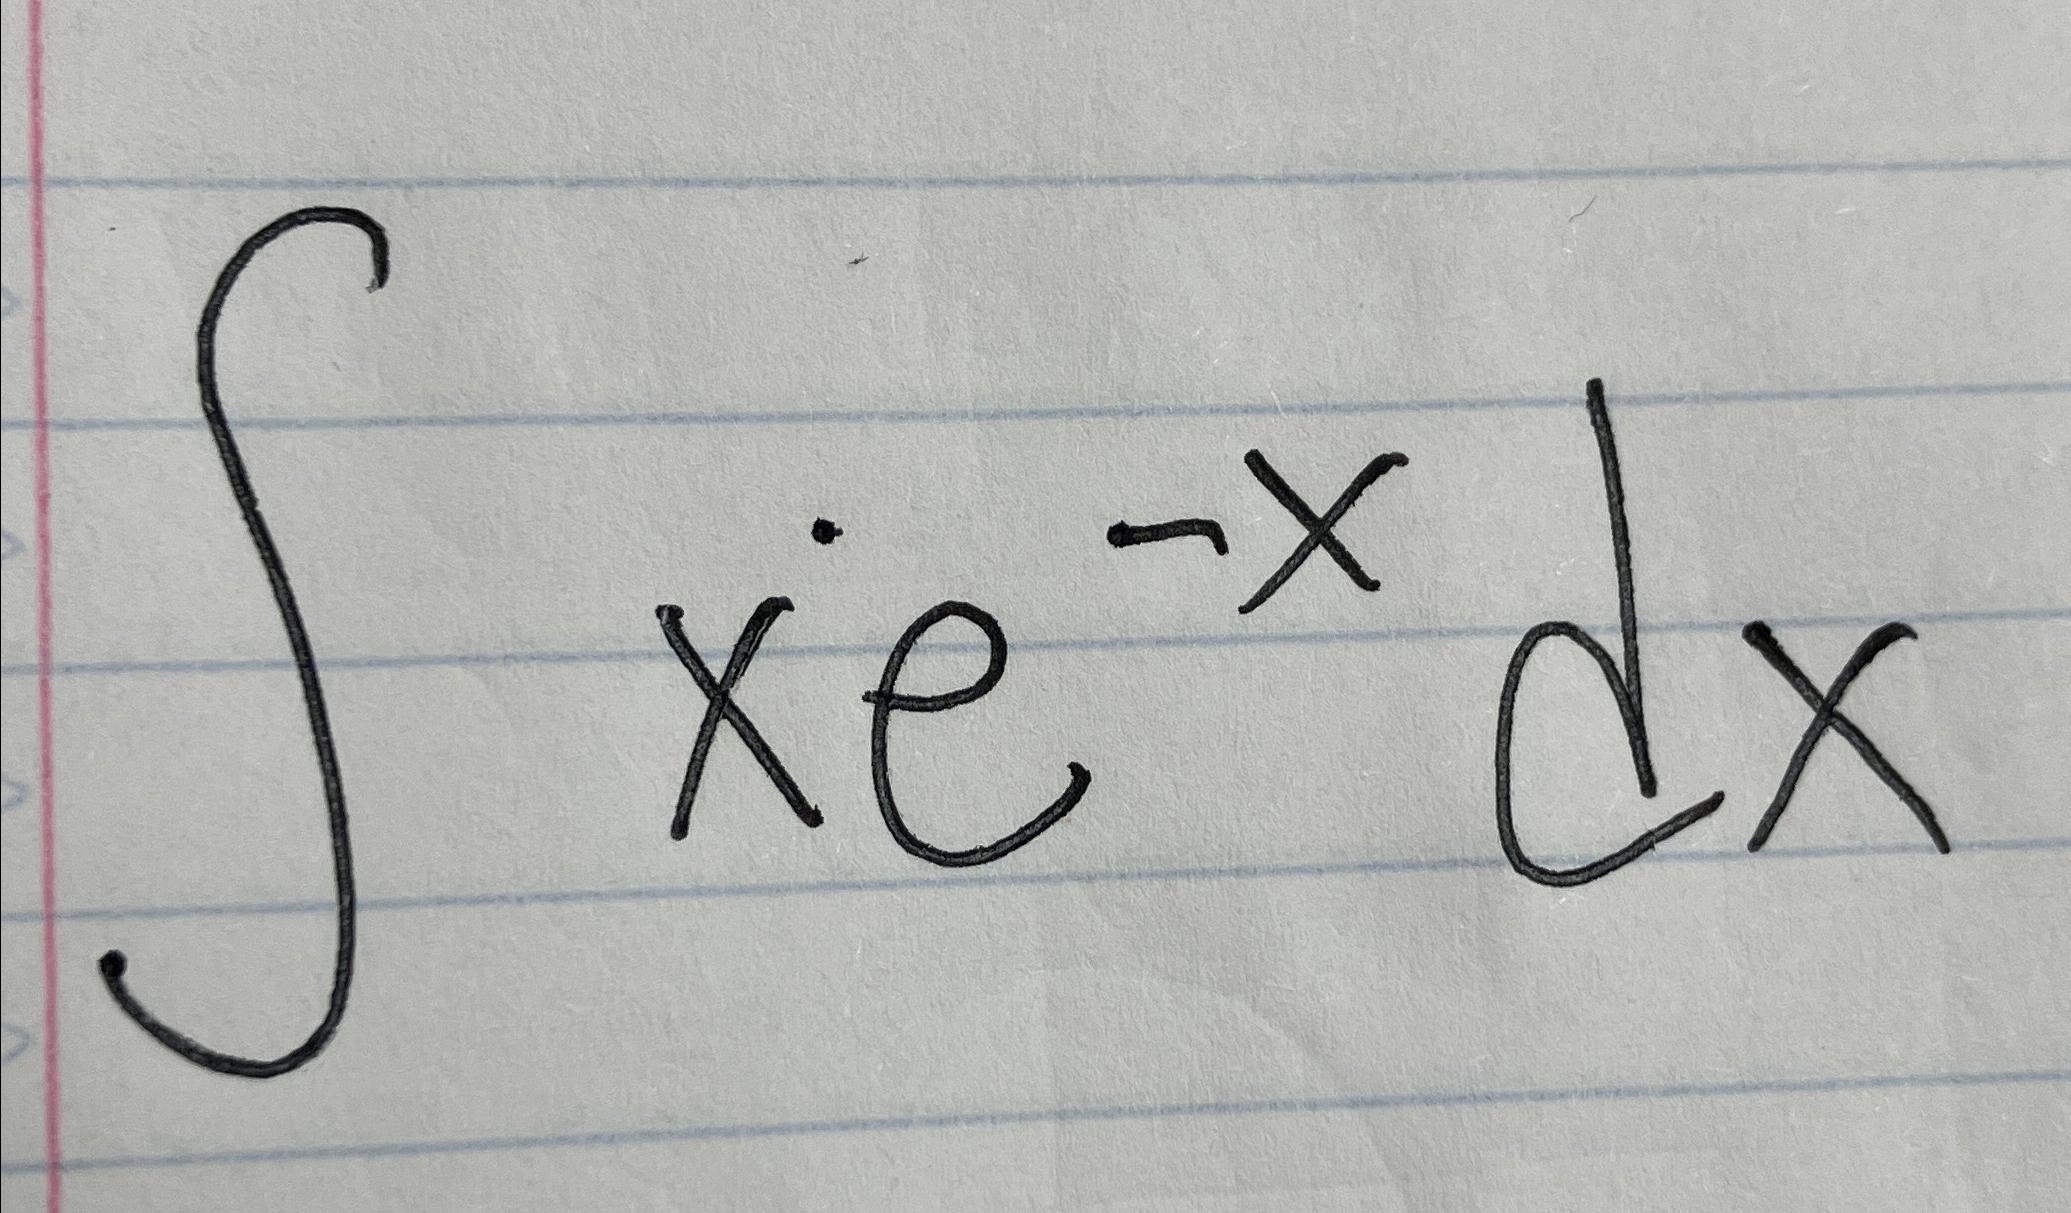 ∫ x e^{-x} dx